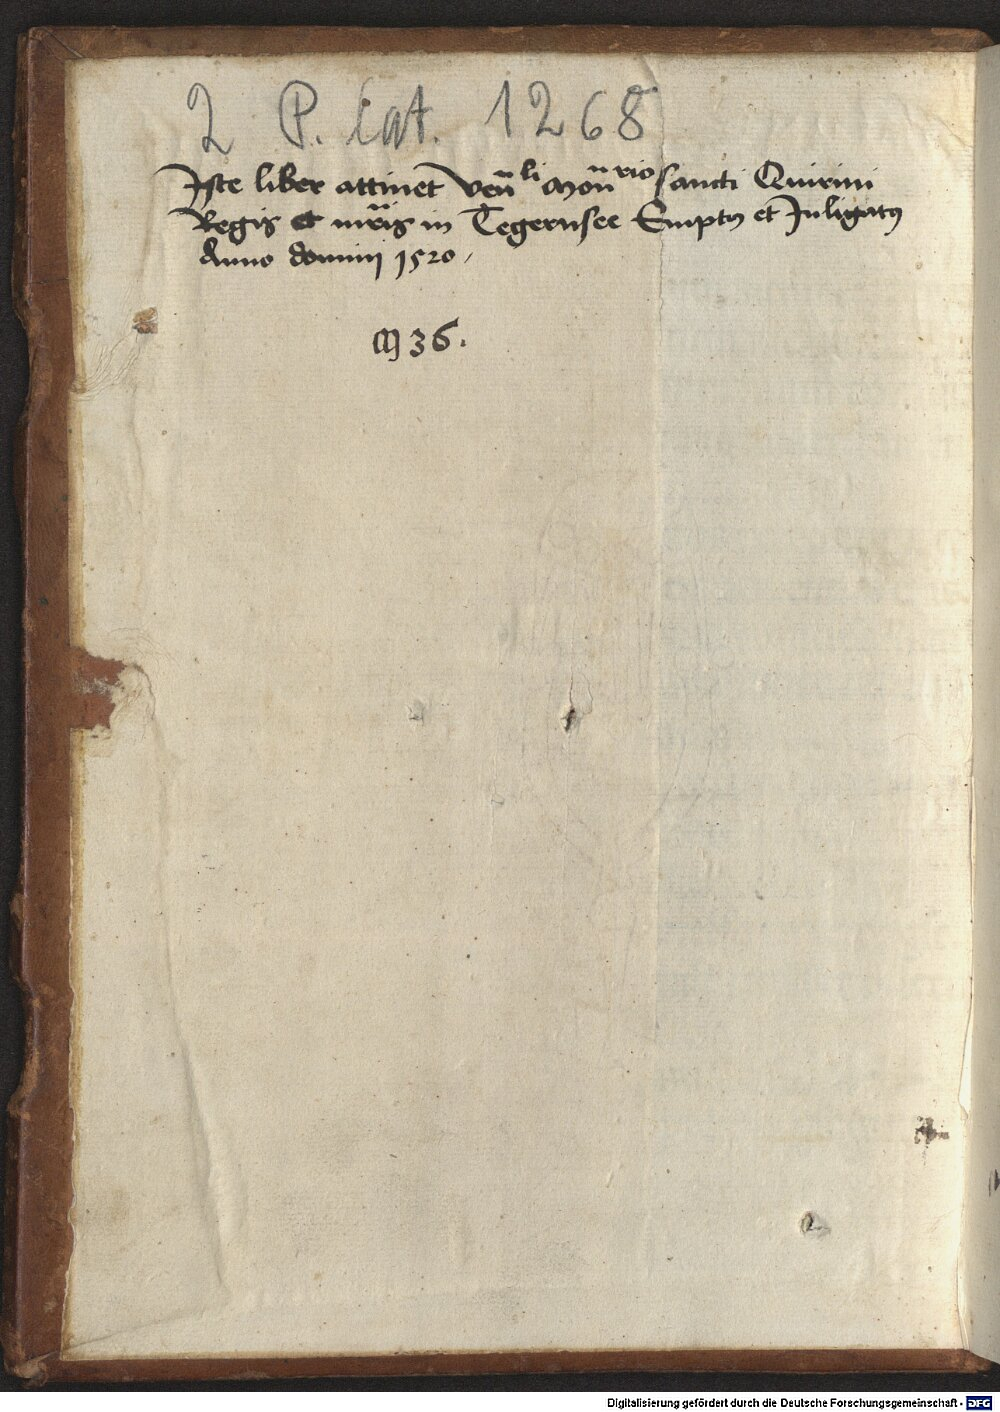 2 P. lat. 1268
Iste liber attinet Ven̄li Mon̄rio sancti Quirini
Regis et mr̄is in Tegernsee Emptꝰ et Inligatꝰ
Anno domini 1520 /
M 36.
Digitalisierung gefördert durch die Deutsche Forschungsgemeinschaft - DFG